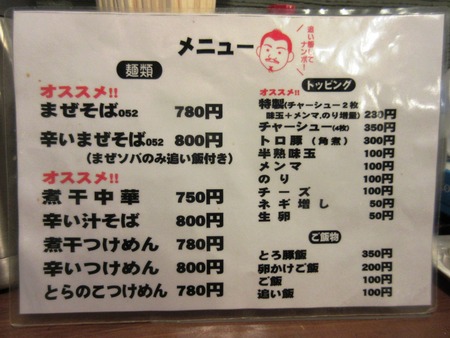 メニュー
追い番してナンボ!
麺類
オススメ!!
まぜそば052 780円
辛いまぜそば052 800円
(まぜソバのみ追い飯付き)
オススメ!!
煮干中華 750円
辛い汁そば 800円
煮干つけめん 780円
辛いつけめん 800円
とらのこつけめん 780円
トッピング
オススメ!!
特製(チャーシュー2枚
味玉+メンマ,のり増量) 230円
チャーシュー(4枚) 350円
トロ豚(角煮) 300円
半熟味玉 100円
メンマ 100円
のり 100円
チーズ 100円
ネギ増し 50円
生卵 50円
ご飯物
とろ豚飯 350円
卵かけご飯 200円
ご飯 100円
追い飯 100円